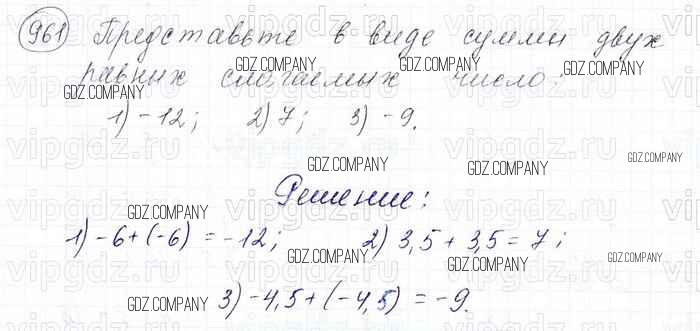 961 Представьте в виде суммы двух
равных слагаемых число:
1) -12; 2) 7; 3) -9.
Решение:
1) -6+(-6) = -12; 2) 3,5 + 3,5 = 7;
3) -4,5 + (-4,5) = -9.
vipgdz.ru
GDZ.COMPANY